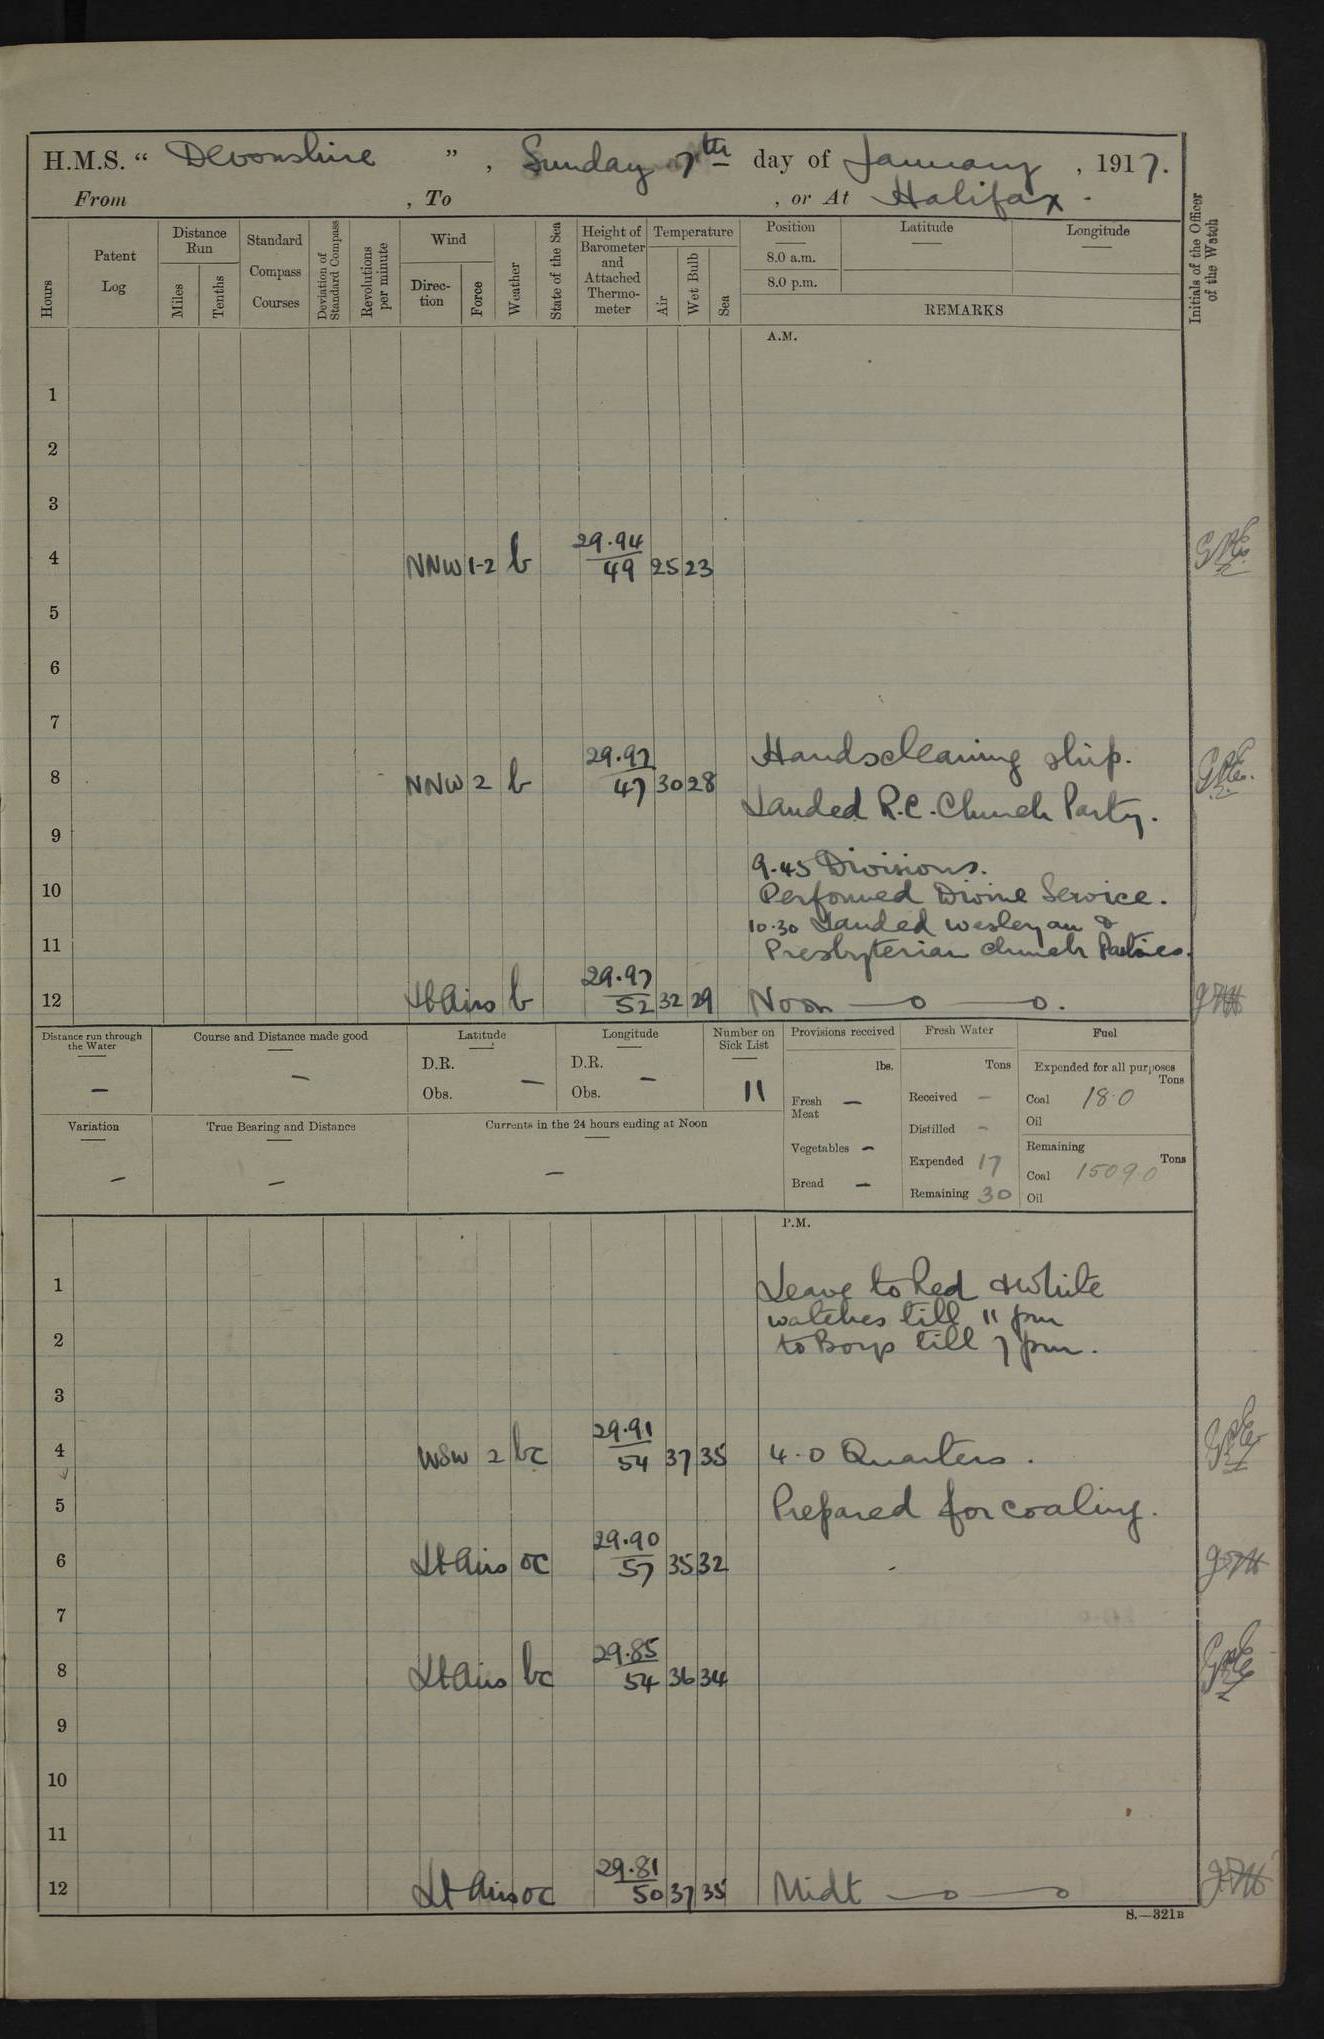 H.M.S. “ Devonshire ” , Sunday 7th day of January , 1917.
From , To , or At Halifax .
Hours
Patent Log
Distance Run
Miles
Tenths
Standard Compass Courses
Deviation of Standard Compass
Revolutions per minute
Wind
Direc-tion
Force
Weather
State of the Sea
Height of Barometer and Attached Thermo-meter
Temperature
Air
Wet Bulb
Sea
Position Latitude Longitude
8.0 a.m.
8.0 p.m.
REMARKS
Initials of the Officer of the Watch
A.M.
1
2
3
4 NNW 1-2 b 29.94 49 25 23
5
6
7
Hands cleaning ship.
8 NNW 2 b 29.97 47 30 28
Landed R.C. Church Party.
9
9.45 Divisions.
10 Performed Divine Service.
10.30 Landed Wesleyan &
11 Presbyterian church Parties.
12 Lt Airs b 29.97 52 32 29 Noon —o —o.
Distance run through the Water
—
Course and Distance made good
—
Latitude
D.R.
Obs. —
Longitude
D.R.
Obs. —
Number on Sick List
11
Provisions received
lbs.
Fresh Meat —
Vegetables —
Bread —
Fresh Water
Tons
Received —
Distilled —
Expended 17
Remaining 30
Fuel
Expended for all purposes
Tons
Coal 18.0
Oil
Remaining
Tons
Coal 1509 0
Oil
Variation
—
True Bearing and Distance
—
Currents in the 24 hours ending at Noon
—
P.M.
1 Leave to Red & White
watches till 11 pm
2 to Boys till 7 pm.
3
4 WSW 2 bc 29.91 54 37 35 4.0 Quarters .
5 Prepared for coaling.
6 Lt Airs oc 29.90 57 35 32
7
8 Lt Airs bc 29.85 54 36 34
9
10
11
12 Lt Airs oc 29.81 50 37 35 Midt —o —o
S.—321B